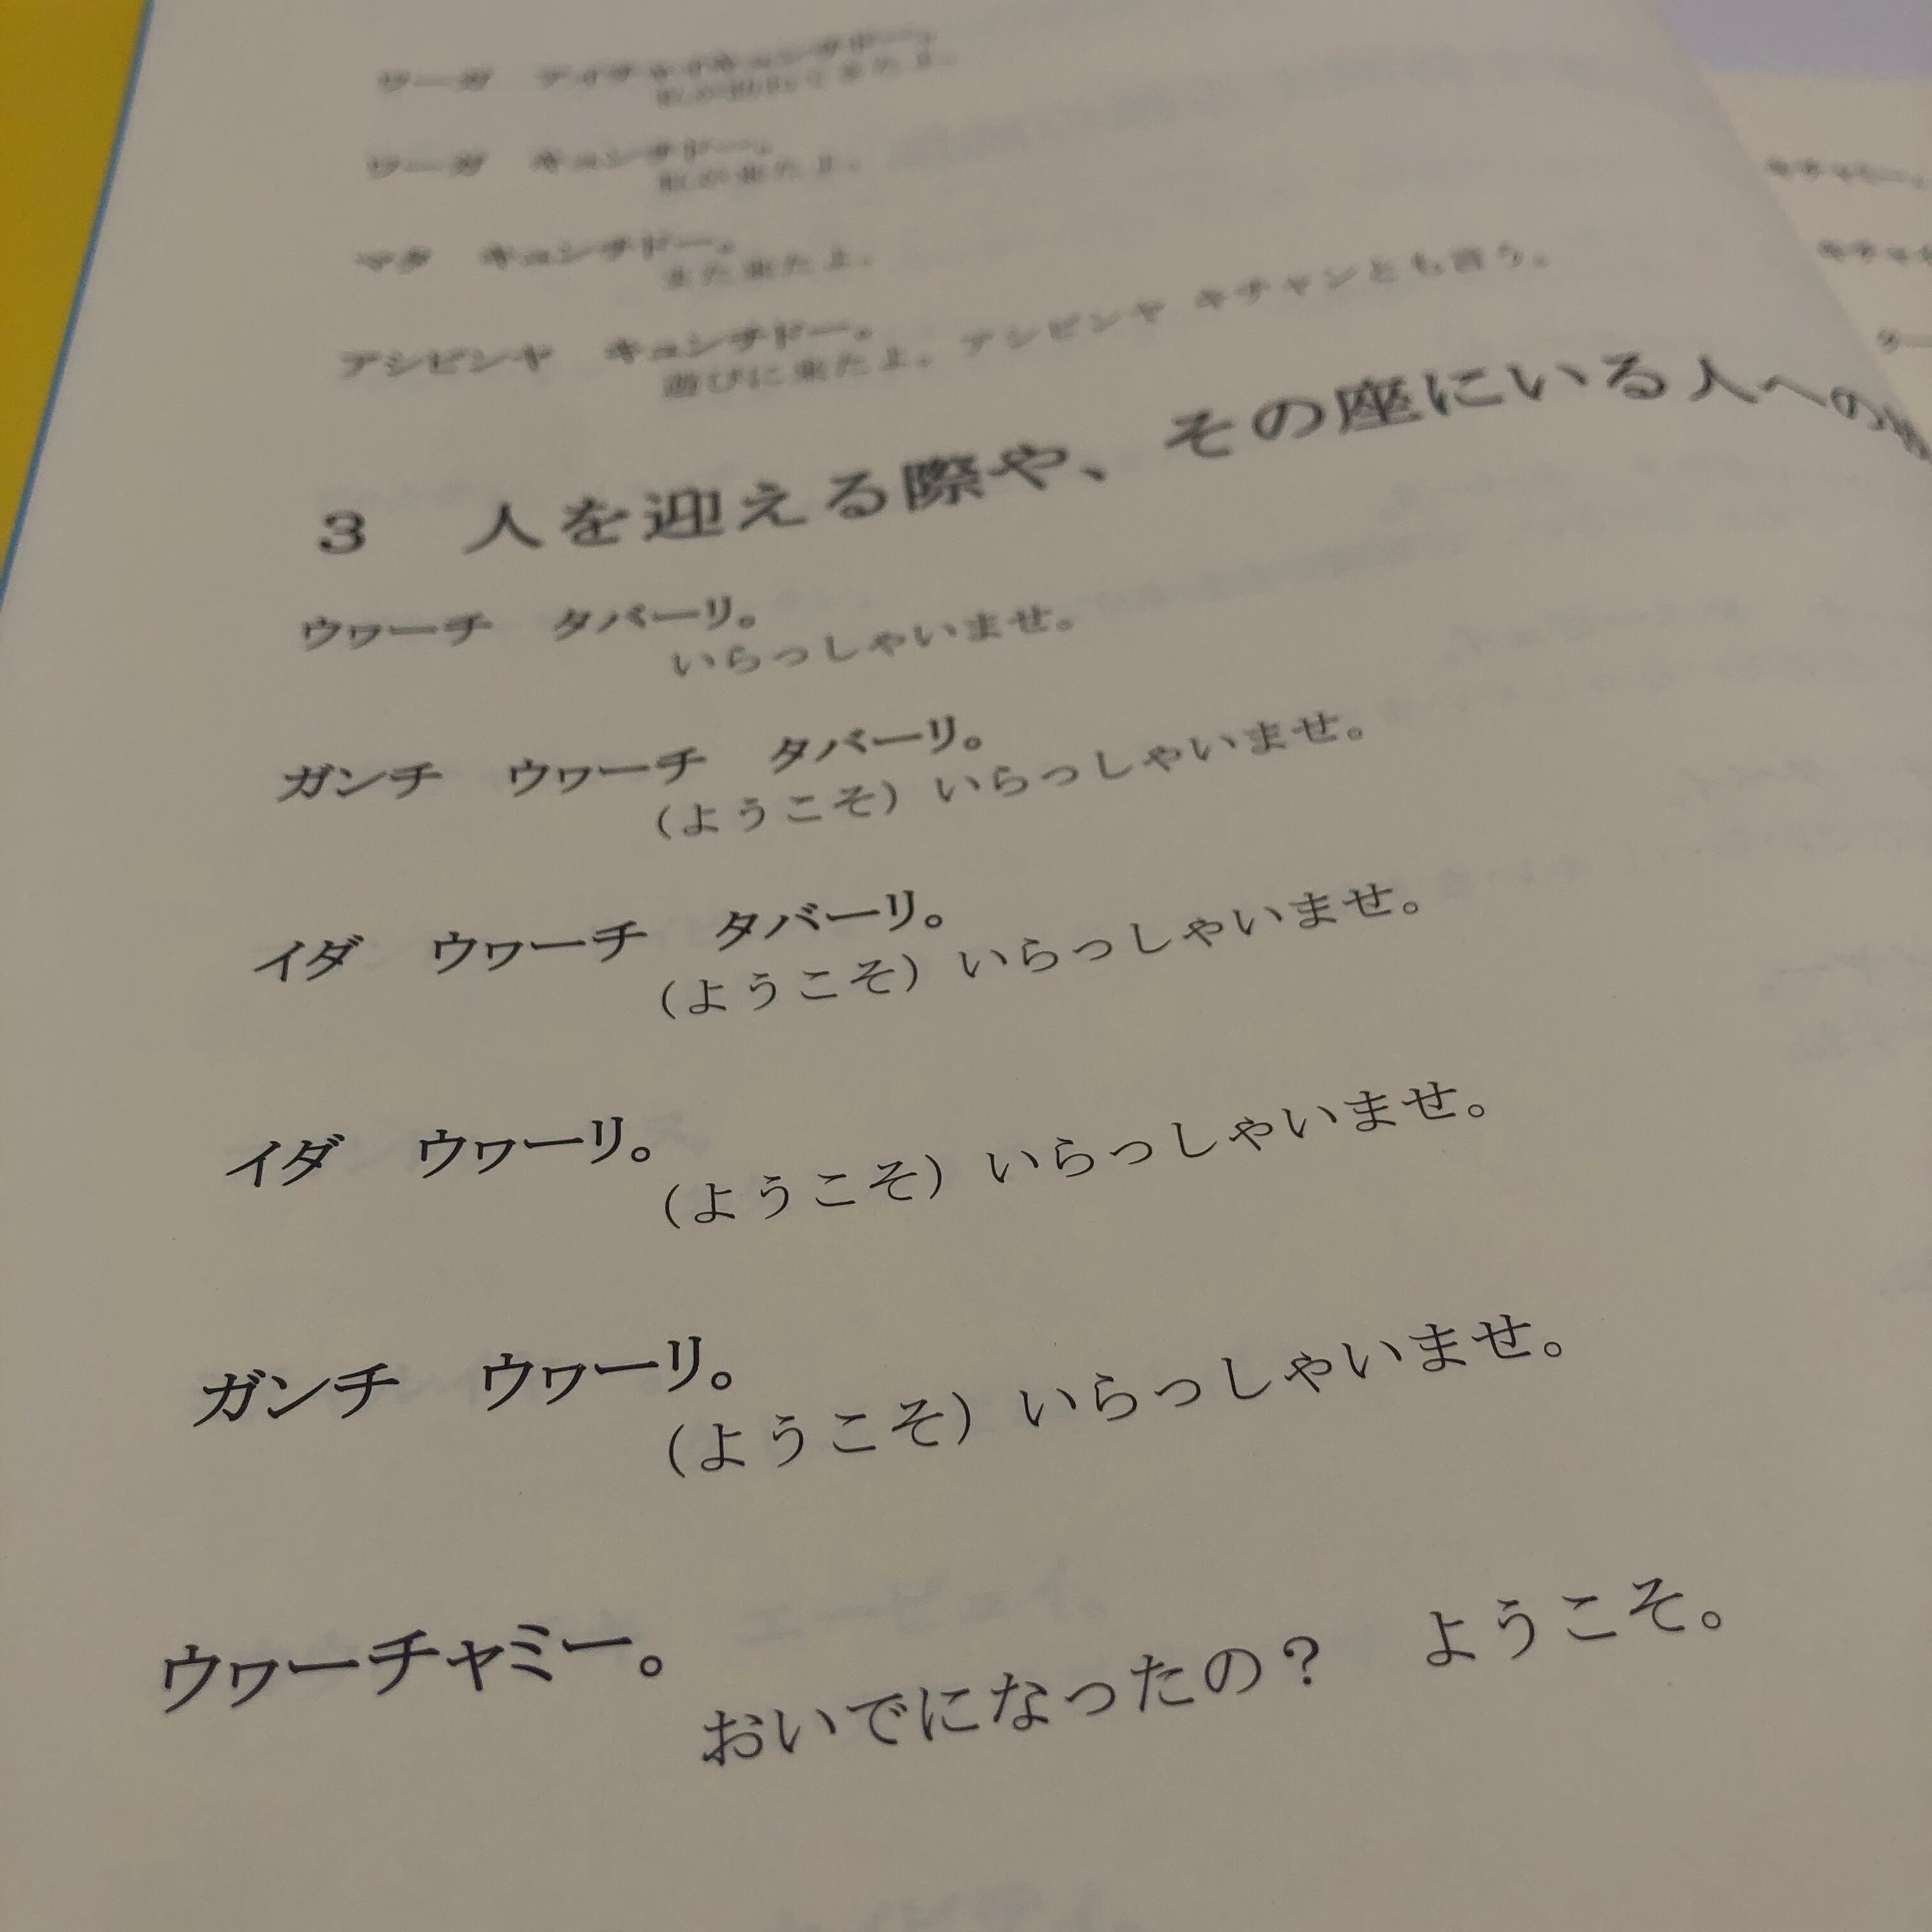 ワーガ キョンチドー。
私が来たよ。
マタ キョンチドー。
また来たよ。
アシビンヤ キョンチドー。
遊びに来たよ。アシビンヤ キチャンとも言う。
3 人を迎える際や、その座にいる人への
ウヮーチ タバーリ。
いらっしゃいませ。
ガンチ ウヮーチ タバーリ。
(ようこそ) いらっしゃいませ。
イダ ウヮーチ タバーリ。
(ようこそ) いらっしゃいませ。
イダ ウヮーリ。
(ようこそ) いらっしゃいませ。
ガンチ ウヮーリ。
(ようこそ) いらっしゃいませ。
ウヮーチャミー。
おいでになったの? ようこそ。